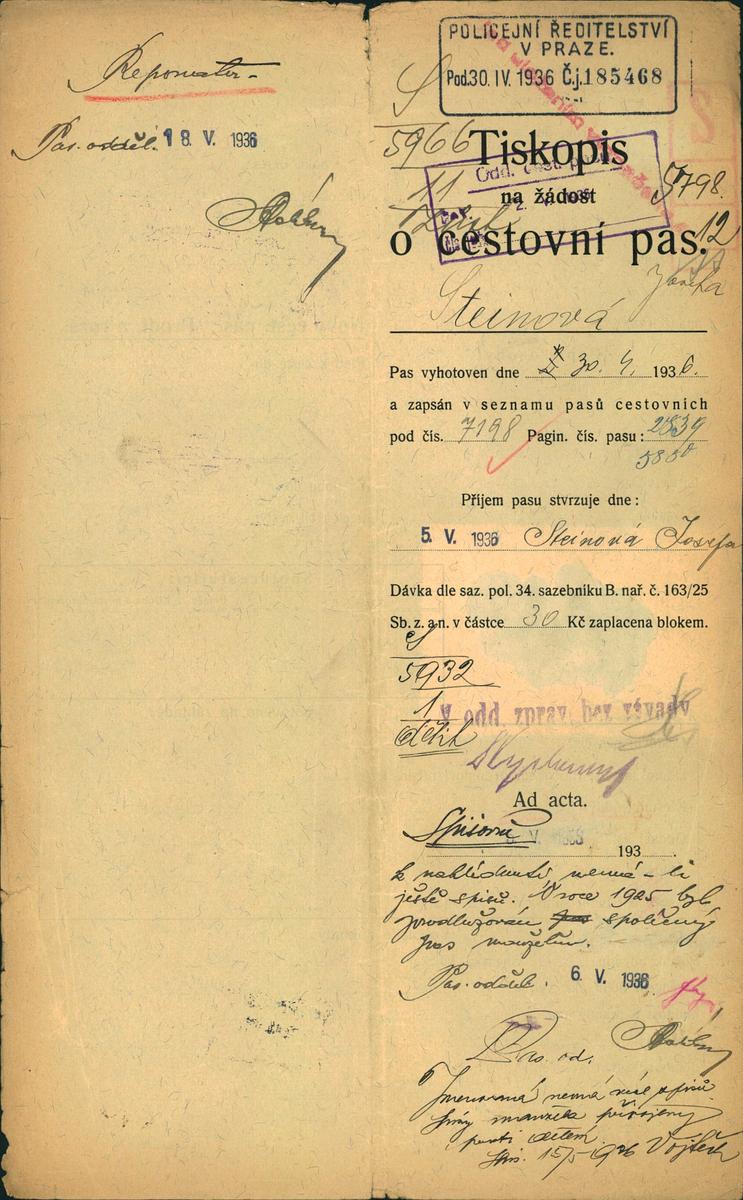 Reponester
Pas. odděl. 18. V. 1936
POLICEJNÍ ŘEDITELSTVÍ
V PRAZE.
Pod. 30. IV. 1936 Č.j. 185468
S
5966
11
Tiskopis
na žádost
5798.
12
o cestovní pas.
Josefa
Steinová
Pas vyhotoven dne 30. 4. 1936.
a zapsán v seznamu pasů cestovních
pod čís. 7198 Pagin. čís. pasu: 2839
5850
Příjem pasu stvrzuje dne:
5. V. 1936 Steinová Josefa
Dávka dle saz. pol. 34. sazebníku B. nař. č. 163/25
Sb. z. a n. v částce 30 Kč zaplacena blokem.
S
5932
1
V odd. zprav. bez závady
Ad acta.
Spisovně
193
k nahlédnutí nemá-li
ještě spisů. V roce 1925 byl
prodlužován společný
pas manželům.
Pas. odděl. 6. V. 1936
Jmenovaná nemá více spisů
manžela připojeny
Vojtěch